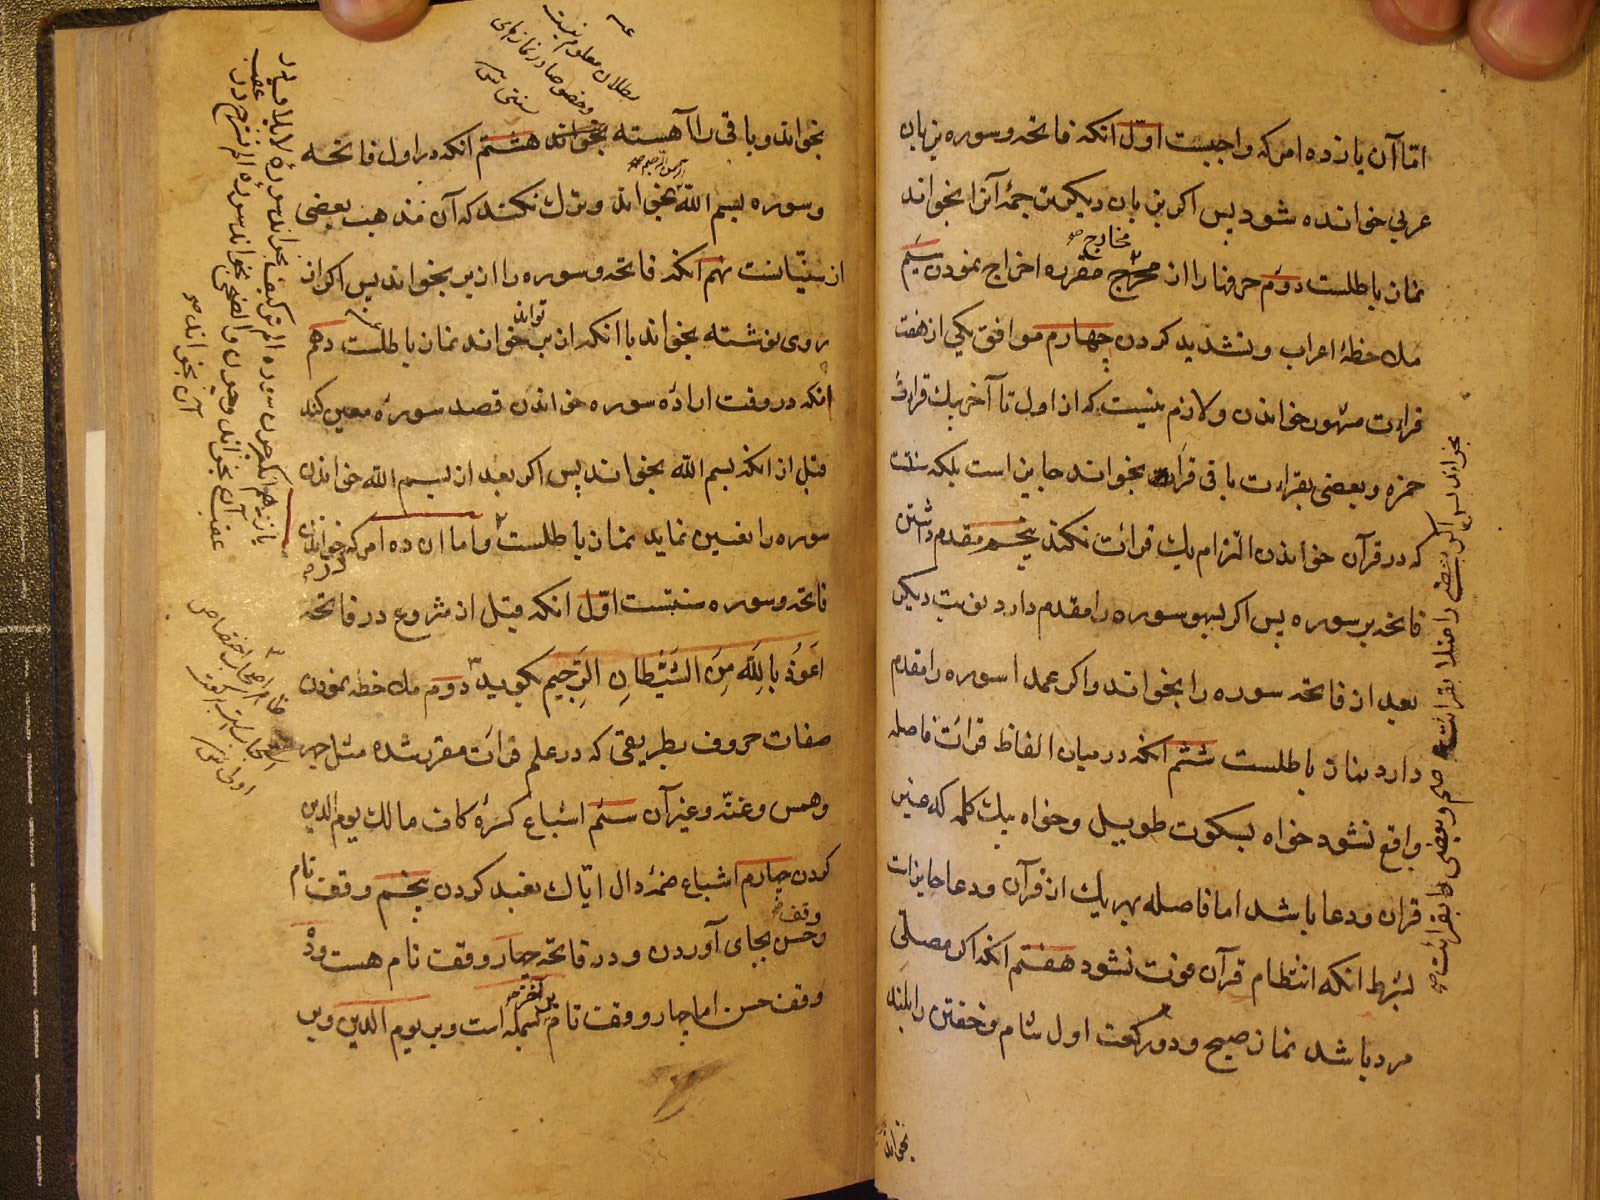 امّا آن یازده امر که واجبست اوّل انکه فاتحه و سوره بزبان
عربی خوانده شود پس اکر بزبان دیکر یا ترجمهٔ آنرا بخواند
نماز باطلست دوم حرفها را از مخرج مقرره اخراج نمودن سیم
مخارج صح
ملاحظهٔ اعراب و تشدید کردن چهارم موافق یکی از هفت
قراءت مشهور خواندن و لازم نیست که از اول تا آخر بیك قراءت
حمزه و بعضی بقراءت باقی قراء بخواند جایز است بلکه سنّتست
که در قرآن خواندن التزام یك قرائت نکند پنجم مقدم داشتن
فاتحه بر سوره پس اکر بسهو سوره را مقدم دارد نوبت دیکر
بعد از فاتحه سوره را بخواند و اکر عمدا سوره را مقدم
دارد نماز باطلست ششم انکه در میان الفاظ قرائت فاصله
واقع نشود خواه بسکوت طویل و خواه بیك کلمه که غیر
قران و دعا باشد اما فاصله بهر یك از قرآن و دعا جایز است
بشرط انکه انتظام قرآن فوت نشود هفتم انکه اکر مصلّی
مرد باشد نماز صبح و دو رکعت اول شام و خفتن را بلند
بخواند
بخواند پس اکر بعضی را مثلا بقرائت عاصم و بعضی را بقرائت صح
بخواند و باقی را آهسته بخواند هشتم انکه در اول فاتحه
و سوره بسم الله بخواند و ترك نکند که آن مذهب بعضی
الرحمن الرحیم صح
از سنّیانست نهم انکه فاتحه و سوره را از بر بخواند پس اکر از
روی نوشته بخواند با انکه از بر خواند نماز باطلست دهم
تواند
انکه در وقت ارادهٔ سوره خواندن قصد سورهٔ معین کند
قبل از انکه بسم الله بخواند پس اکر بعد از بسم الله خواندن
سوره را تعیین نماید نماز باطلست و اما ان ده امر که خواندن
در صح
فاتحه و سوره سنتست اوّل انکه قبل از شروع در فاتحه
اَعُوذُ بِاللّٰهِ مِنَ الشَّيْطَانِ الرَّجِيمِ بکوید دوم ملاحظه نمودن
صفات حروف بطریقی که در علم قرائت مقرر شده مثل جهر
و همس و غنّه و غیر آن سیّم اشباع کسرهٔ کاف مالك یوم الدین
کردن چهارم اشباع ضمهٔ دال ایّاك نعبد کردن پنجم وقف تام
وقف صح
و حسن بجای آوردن و در فاتحه چهار وقف تام هست و ده
وقف حسن اما چهار وقف تام بر بسمله است و بر یوم الدین و بر
بطلان معلوم نیست
و خصوصا در نمازهای
سنتی
یازدهم انکه چون سوره الم تر کیف بخواند سورهٔ لایلاف در
عقب آن بخواند و چون والضحی بخواند سورهٔ الم نشرح در عقب
آن بخواند صح